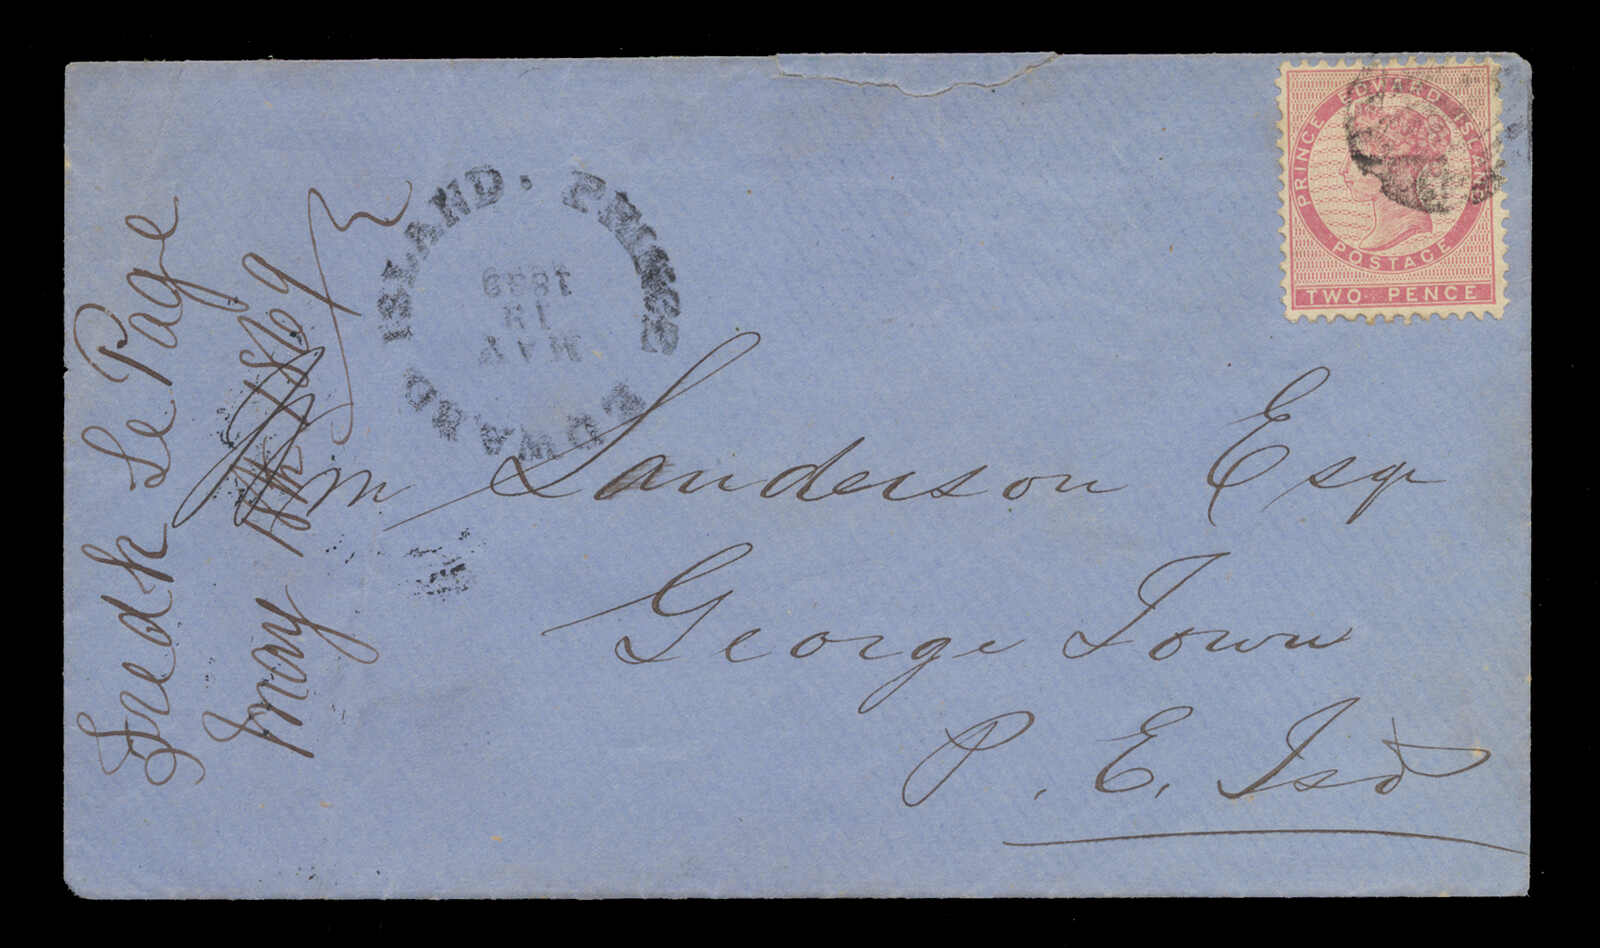 PRINCE EDWARD ISLAND
POSTAGE
TWO PENCE
PRINCE EDWARD ISLAND.
MAY
1869
Wm Sanderson Esqr
George Town
P. E. Isd
Fredk Le Page
May 1869